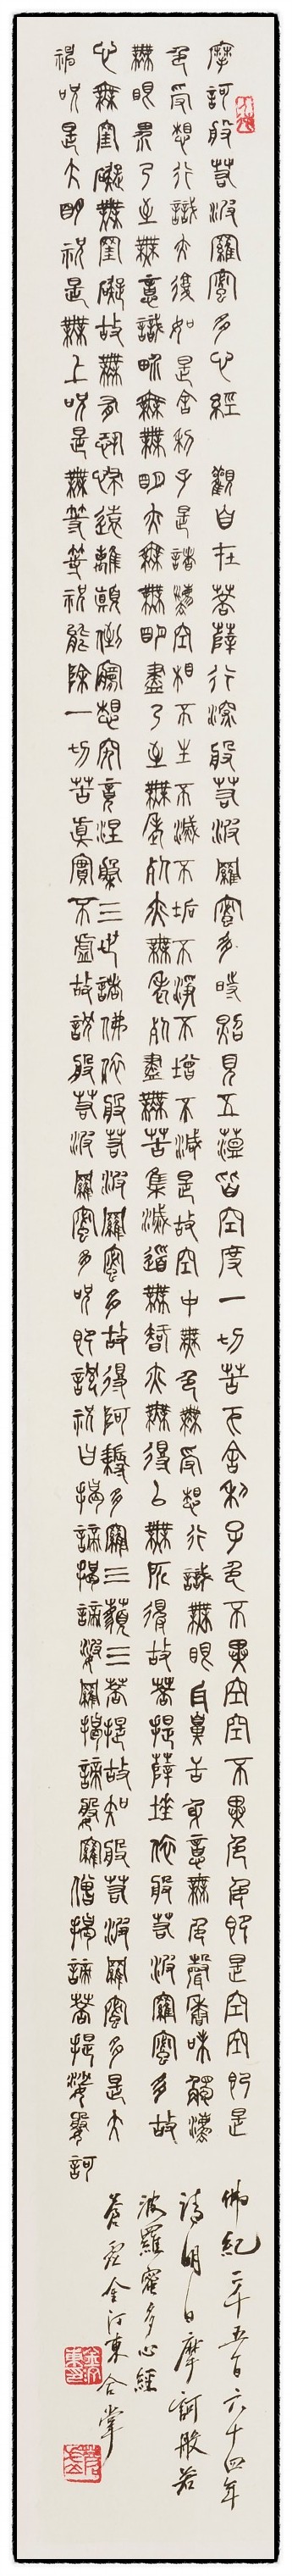 摩訶般若波羅蜜多心經 觀自在菩薩行深般若波羅蜜多時照見五蘊皆空度一切苦厄舍利子色不異空空不異色色卽是空空卽是
色受想行識亦復如是舍利子是諸法空相不生不滅不垢不淨不增不減是故空中無色無受想行識無眼耳鼻舌身意無色聲香味觸法
無眼界乃至無意識界無無明亦無無明盡乃至無老死亦無老死盡無苦集滅道無智亦無得以無所得故菩提薩埵依般若波羅蜜多故
心無罣礙無罣礙故無有恐怖遠離顚倒夢想究竟涅槃三世諸佛依般若波羅蜜多故得阿耨多羅三藐三菩提故知般若波羅蜜多是大
神呪是大明呪是無上呪是無等等呪能除一切苦眞實不虛故說般若波羅蜜多呪卽說呪曰揭諦揭諦婆羅揭諦婆羅僧揭諦菩提娑婆訶
佛紀二千五百六十四年
請明日摩訶般若
波羅蜜多心經
金河東合掌